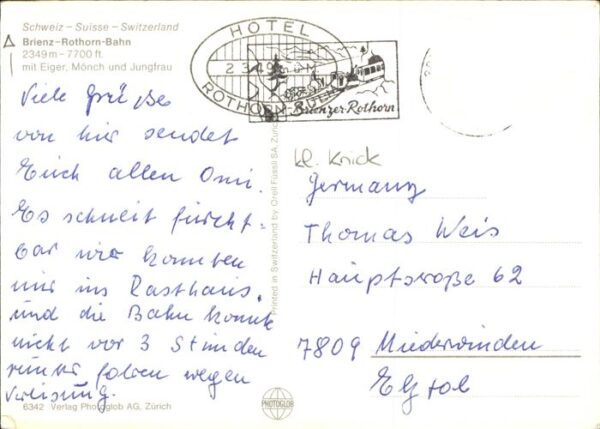 Schweiz – Suisse – Switzerland
Brienz-Rothorn-Bahn
2349 m – 7700 ft.
mit Eiger, Mönch und Jungfrau
HOTEL
2349 M
ROTHORN-KULM
Brienzer-Rothorn
Viele Grüßes
von hir sendet
Euch allen Omi.
Es schneit fürcht-
bar wir konnten
nur ins Rasthaus.
und die Bahn konnte
nicht vor 3 Stunden
runter fahren wegen
Vereisung.
6342 Verlag Photoglob AG, Zürich
Printed in Switzerland by Orell Füssli SA, Zürich
PHOTOGLOB
kl. Knick
Germany
Thomas Weis
Hauptstraße 62
7809 Niederwinden
Elztal